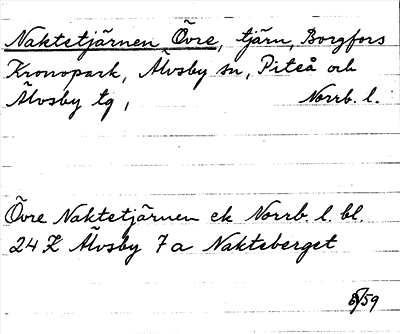 Naktetjärnen, Övre, tjärn, Borgfors
Kronopark, Älvsby sn, Piteå och
Älvsby tg, Norrb. l.
Övre Naktetjärnen ek Norrb. l. bl.
24 K Älvsby 7 a Nakteberget
59